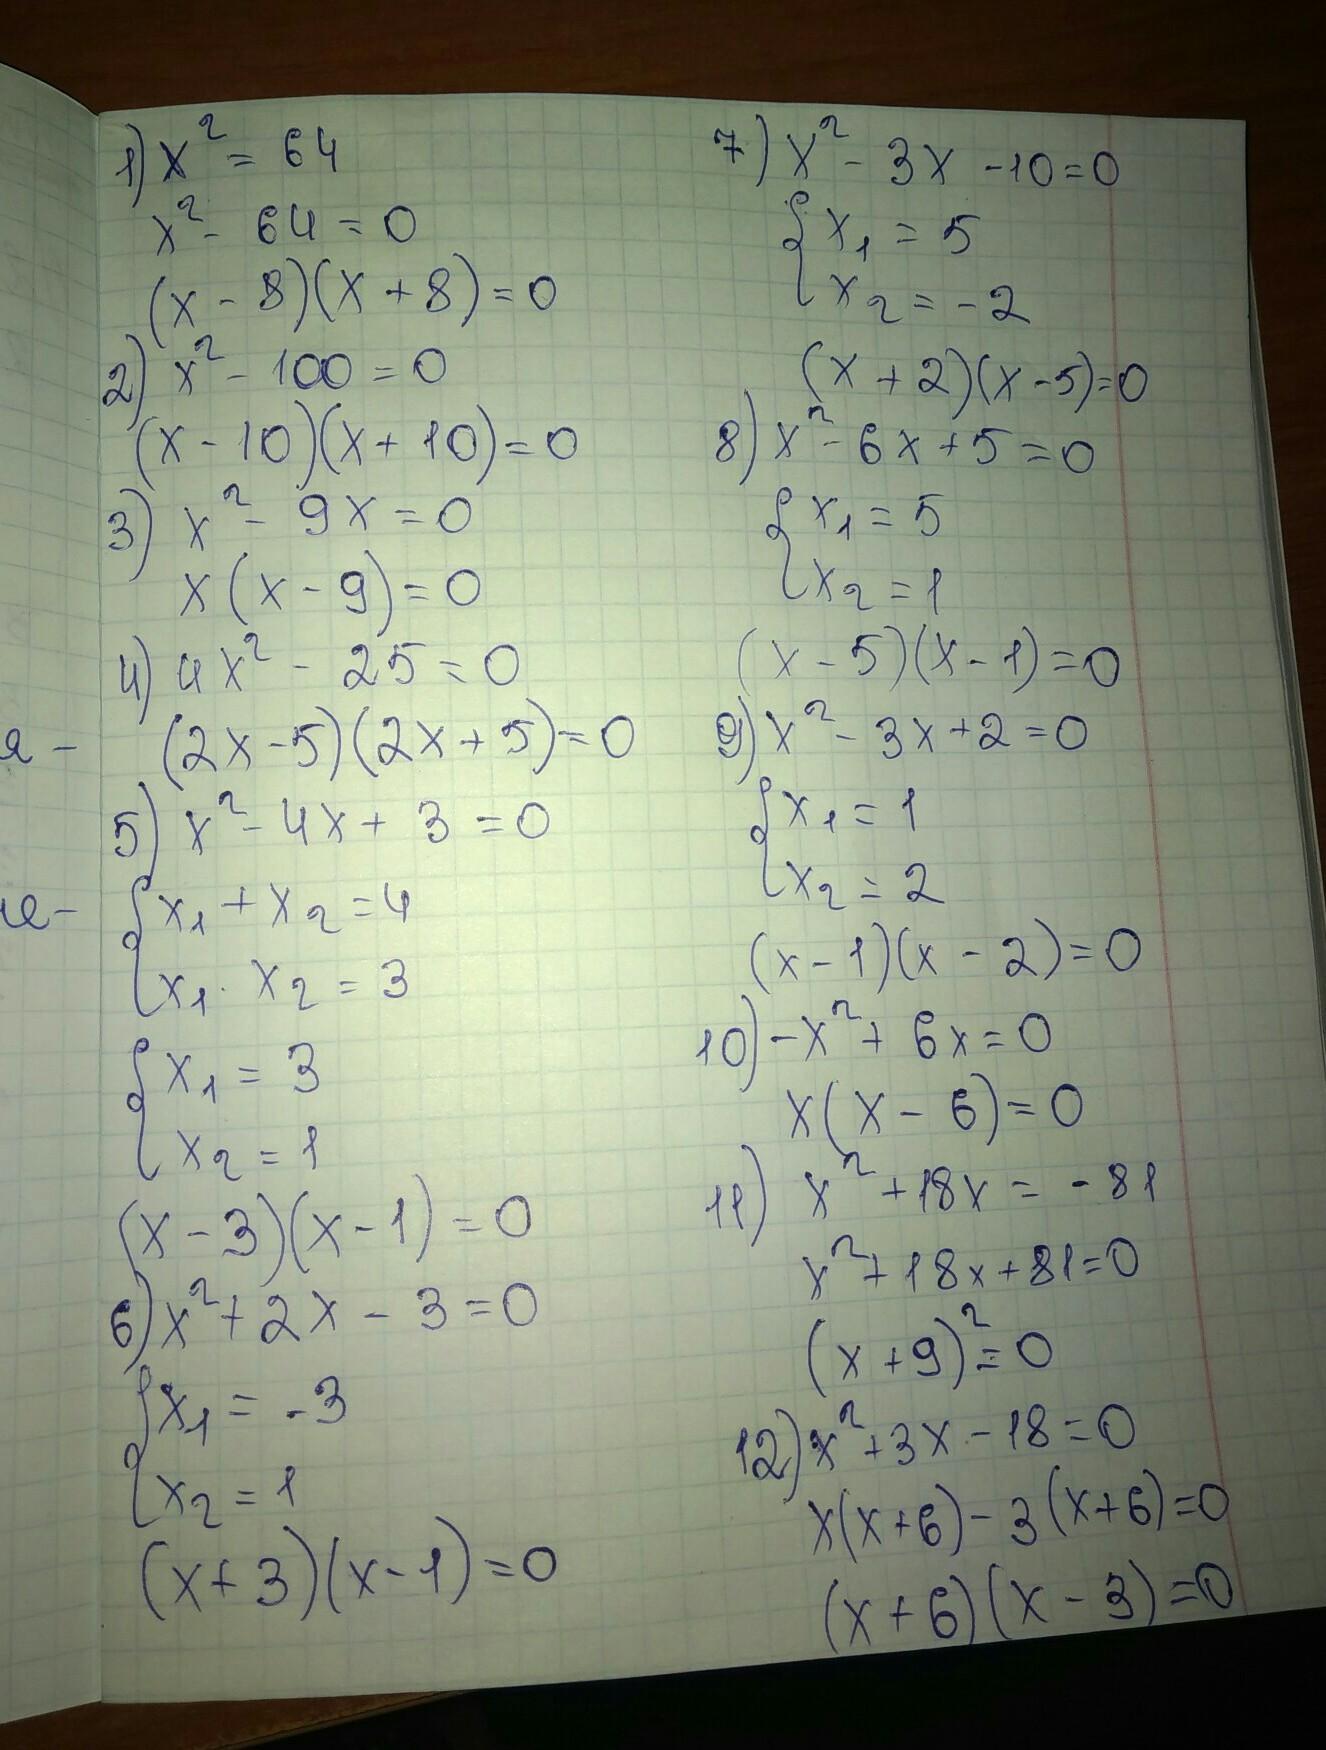 1) x² = 64
x² - 64 = 0
(x - 8)(x + 8) = 0
2) x² - 100 = 0
(x - 10)(x + 10) = 0
3) x² - 9x = 0
x(x - 9) = 0
4) 4x² - 25 = 0
(2x - 5)(2x + 5) = 0
5) x² - 4x + 3 = 0
{ x₁ + x₂ = 4
x₁ · x₂ = 3
{ x₁ = 3
x₂ = 1
(x - 3)(x - 1) = 0
6) x² + 2x - 3 = 0
{ x₁ = -3
x₂ = 1
(x + 3)(x - 1) = 0
7) x² - 3x - 10 = 0
{ x₁ = 5
x₂ = -2
(x + 2)(x - 5) = 0
8) x² - 6x + 5 = 0
{ x₁ = 5
x₂ = 1
(x - 5)(x - 1) = 0
9) x² - 3x + 2 = 0
{ x₁ = 1
x₂ = 2
(x - 1)(x - 2) = 0
10) -x² + 6x = 0
x(x - 6) = 0
11) x² + 18x = -81
x² + 18x + 81 = 0
(x + 9)² = 0
12) x² + 3x - 18 = 0
x(x + 6) - 3(x + 6) = 0
(x + 6)(x - 3) = 0